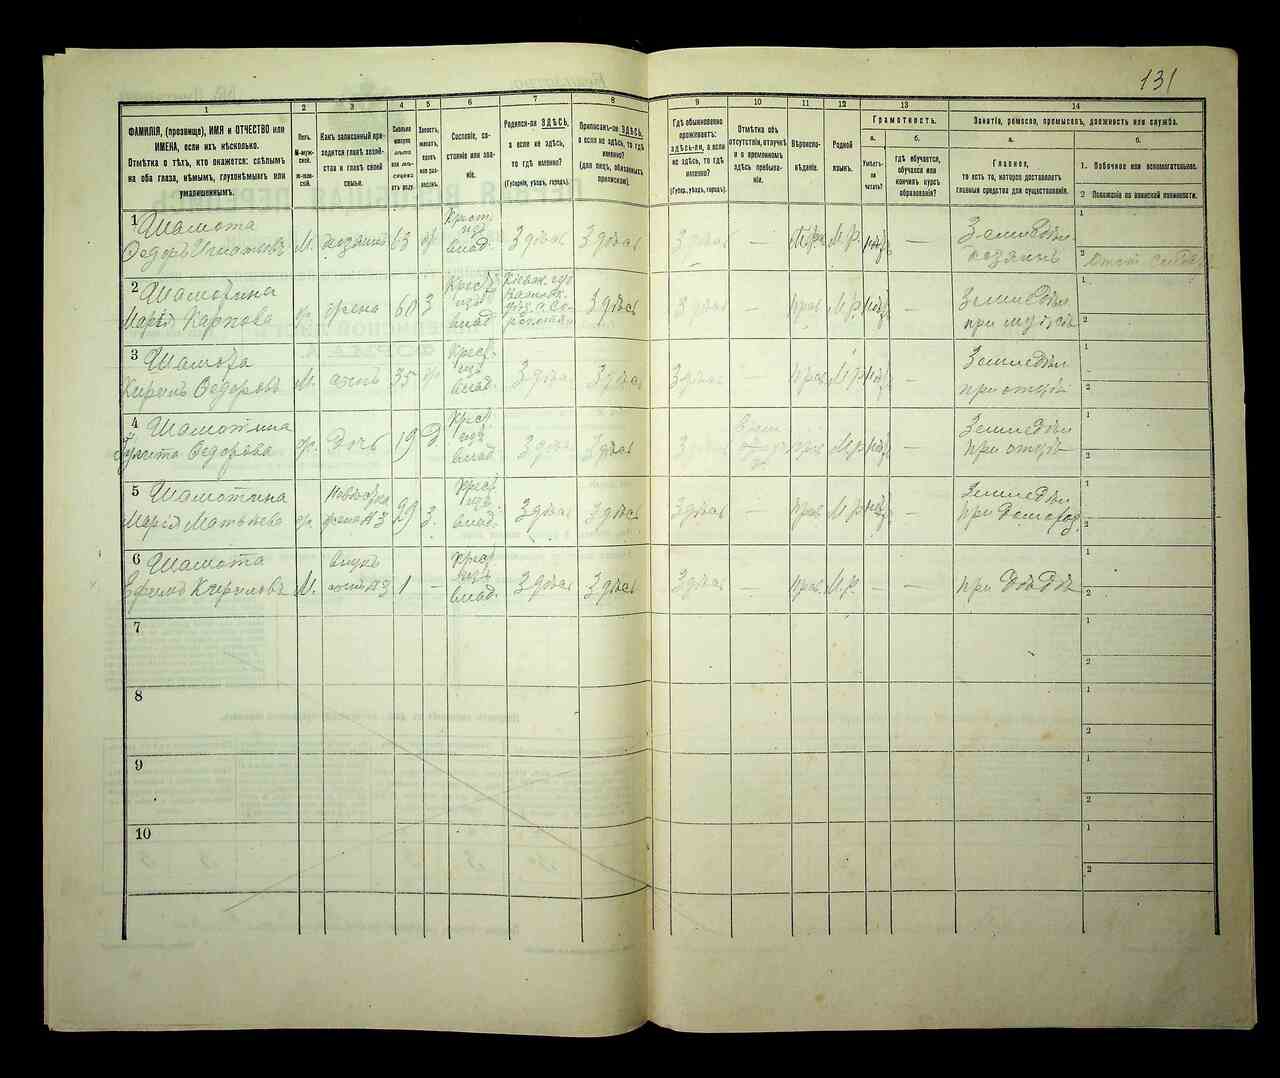 131
1
2
3
4
5
6
7
8
9
10
11
12
13
14
ФАМИЛІЯ, (прозвище), ИМЯ и ОТЧЕСТВО или
ИМЕНА, если ихъ нѣсколько.
Отмѣтка о тѣхъ, кто окажется: слѣпымъ
на оба глаза, нѣмымъ, глухонѣмымъ или
умалишеннымъ.
Полъ.
М-мужской.
Ж-женскій.
Какъ записанный приходится
главѣ хозяйства
и главѣ своей
семьи.
Сколько
минуло
лѣтъ
или мѣсяцевъ
отъ роду.
Холостъ,
женатъ,
вдовъ
или разведенъ.
Сословіе, состояніе
или званіе.
Родился-ли ЗДѢСЬ,
а если не здѣсь,
то гдѣ именно?
(Губернія, уѣздъ, городъ).
Приписанъ-ли ЗДѢСЬ,
а если не здѣсь, то гдѣ
именно?
(для лицъ, обязанныхъ
припиской).
Гдѣ обыкновенно
проживаетъ:
здѣсь-ли, а если
не здѣсь, то гдѣ
именно?
(Губер., уѣздъ, городъ).
Отмѣтка объ
отсутствіи, отлучкѣ
и о временномъ
здѣсь пребываніи.
Вѣроисповѣданіе.
Родной
языкъ.
Грамотность.
а.
Умѣетъ-ли
читать?
б.
гдѣ обучается,
обучался или
кончилъ курсъ
образованія?
Занятіе, ремесло, промыселъ, должность или служба.
а.
Главное,
то есть то, которое доставляетъ
главныя средства для существованія.
б.
1. Побочное или вспомогательное.
2 Положеніе по воинской повинности.
1 Шамота
Федоръ Игнатовъ М. хозяинъ 63 ж Крест. изъ влад. Здѣсь Здѣсь Здѣсь — М.р. нѣтъ — Земледѣл. хозяинъ
1
2
2 Шамотина
Марія Карпова ж. жена 60 з Крест. изъ влад. Здѣсь Здѣсь — прав. М.р. нѣтъ — Земледѣл. при мужѣ
1
2
3 Шамота
Кирилъ Федоровъ М. сынъ 35 ж Крест. изъ влад. Здѣсь Здѣсь Здѣсь — прав. М.р. нѣтъ — Земледѣл. при отцѣ
1
2
4 Шамотина
Федорова ж. дочь 19 д Крест. изъ влад. Здѣсь Здѣсь Здѣсь прав. М.р. нѣтъ — Земледѣл. при отцѣ
1
2
5 Шамотина
Марія Матвѣева ж. невѣстка жена №3 29 з. Крест. изъ влад. Здѣсь Здѣсь Здѣсь — прав. М.р. нѣтъ — Земледѣл.
1
2
6 Шамота
Ефимъ Кириловъ М. внукъ сынъ №3 1 — Крест. изъ влад. Здѣсь Здѣсь Здѣсь — прав. М.р. — — при дѣдѣ
1
2
7
1
2
8
1
2
9
1
2
10
1
2